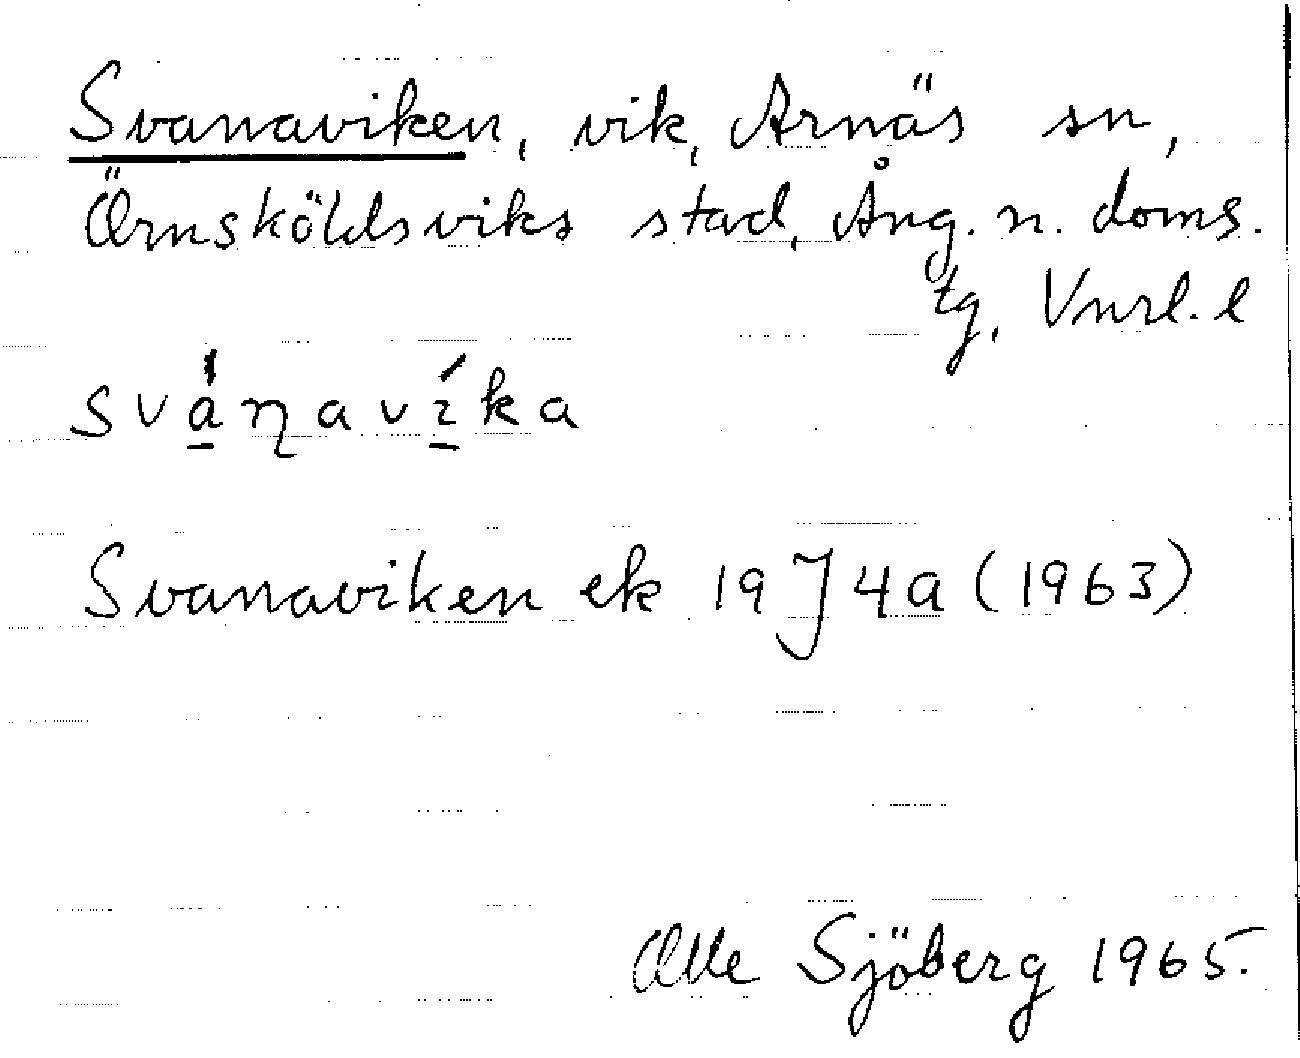 Svanaviken, vik, Arnäs sn,
Örnsköldsviks stad, Ång. n. doms.
tg, Vnrl. l
svá̱ŋaví̱ka
Svanaviken ek 19 J 4a (1963)
Olle Sjöberg 1965.